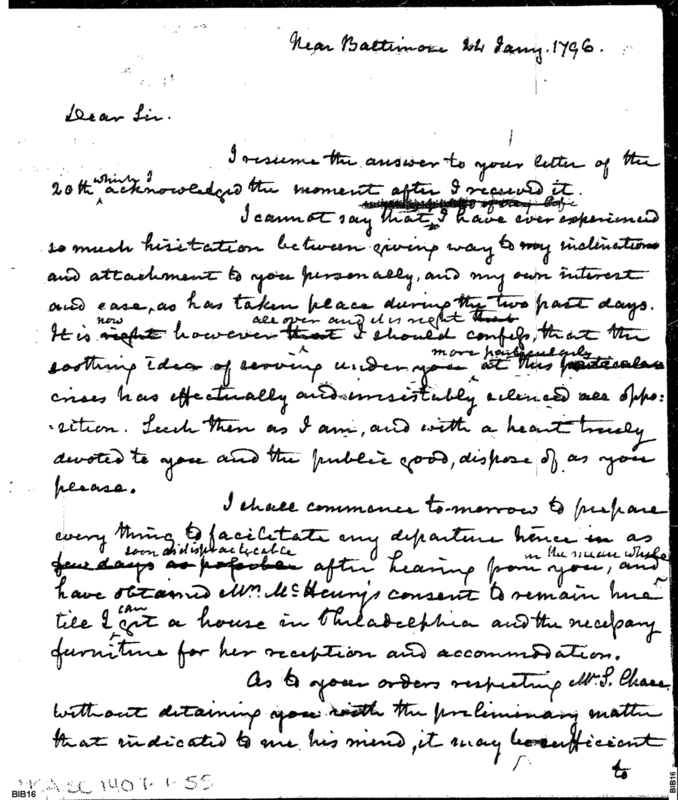 Near Baltimore 24 Jany. 1796.
Dear Sir.
I resume the answer to your letter of the
which I
20th acknowledged the moment after I received it.
I cannot say that I have ever experienced
so much hisitation between giving way to my inclinations
and attachment to you personally, and my own interest
and ease, as has taken place during the two past days.
now all over and it is right that
It is right however that I should confess, that the
more particularly
soothing idea of serving under you at this particular
crises has effectually and irresistably silenced all oppo:
:sition. Such then as I am, and with a heart truly
devoted to you and the public good, dispose of as you
please.
I shall commence to-morrow to prepare
every thing to facilitate my departure hence in as
soon as is practicable in the mean while
few days as possible after hearing from you, and
have obtained Mrs. McHenry's consent to remain here
can
till I get a house in Philadelphia and the necessary
furniture for her reception and accommodation.
As to your orders respecting Mr. S. Chase.
without detaining you with the preliminary matter
that indicated to me his mind, it may be sufficient
to
SC 1407-1-55
BIB16
BIB16